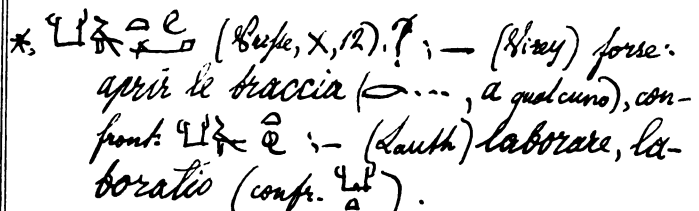 *, (Prisse, X, 12). ? ; — (Virey) forse:
aprir le braccia ( ..., a qualcuno), con-
front. ; — (Lauth) laborare, la-
boratio (confr. ).